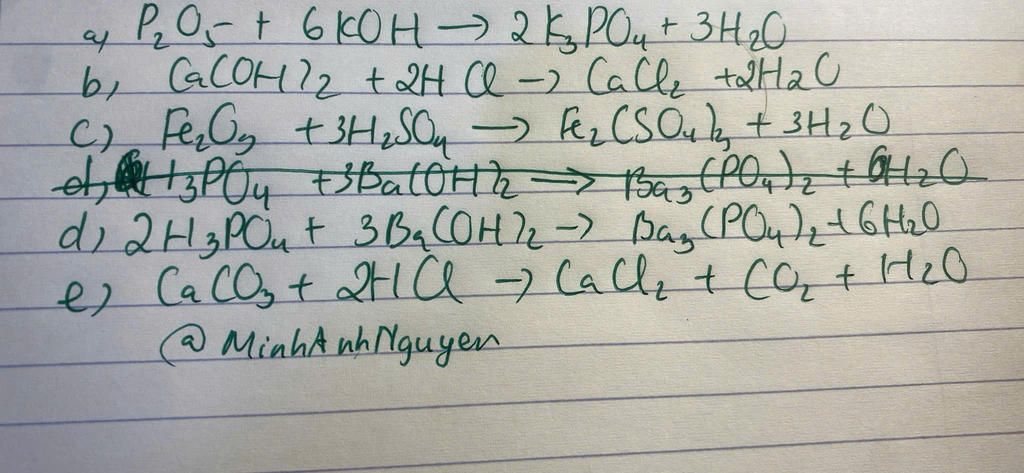 a, P₂O₅ + 6KOH → 2K₃PO₄ + 3H₂O
b, Ca(OH)₂ + 2HCl → CaCl₂ + 2H₂O
c) Fe₂O₃ + 3H₂SO₄ → Fe₂(SO₄)₃ + 3H₂O
d, H₃PO₄ + 3Ba(OH)₂ → Ba₃(PO₄)₂ + 6H₂O
d, 2H₃PO₄ + 3Ba(OH)₂ → Ba₃(PO₄)₂ + 6H₂O
e) CaCO₃ + 2HCl → CaCl₂ + CO₂ + H₂O
@MinhAnhNguyen